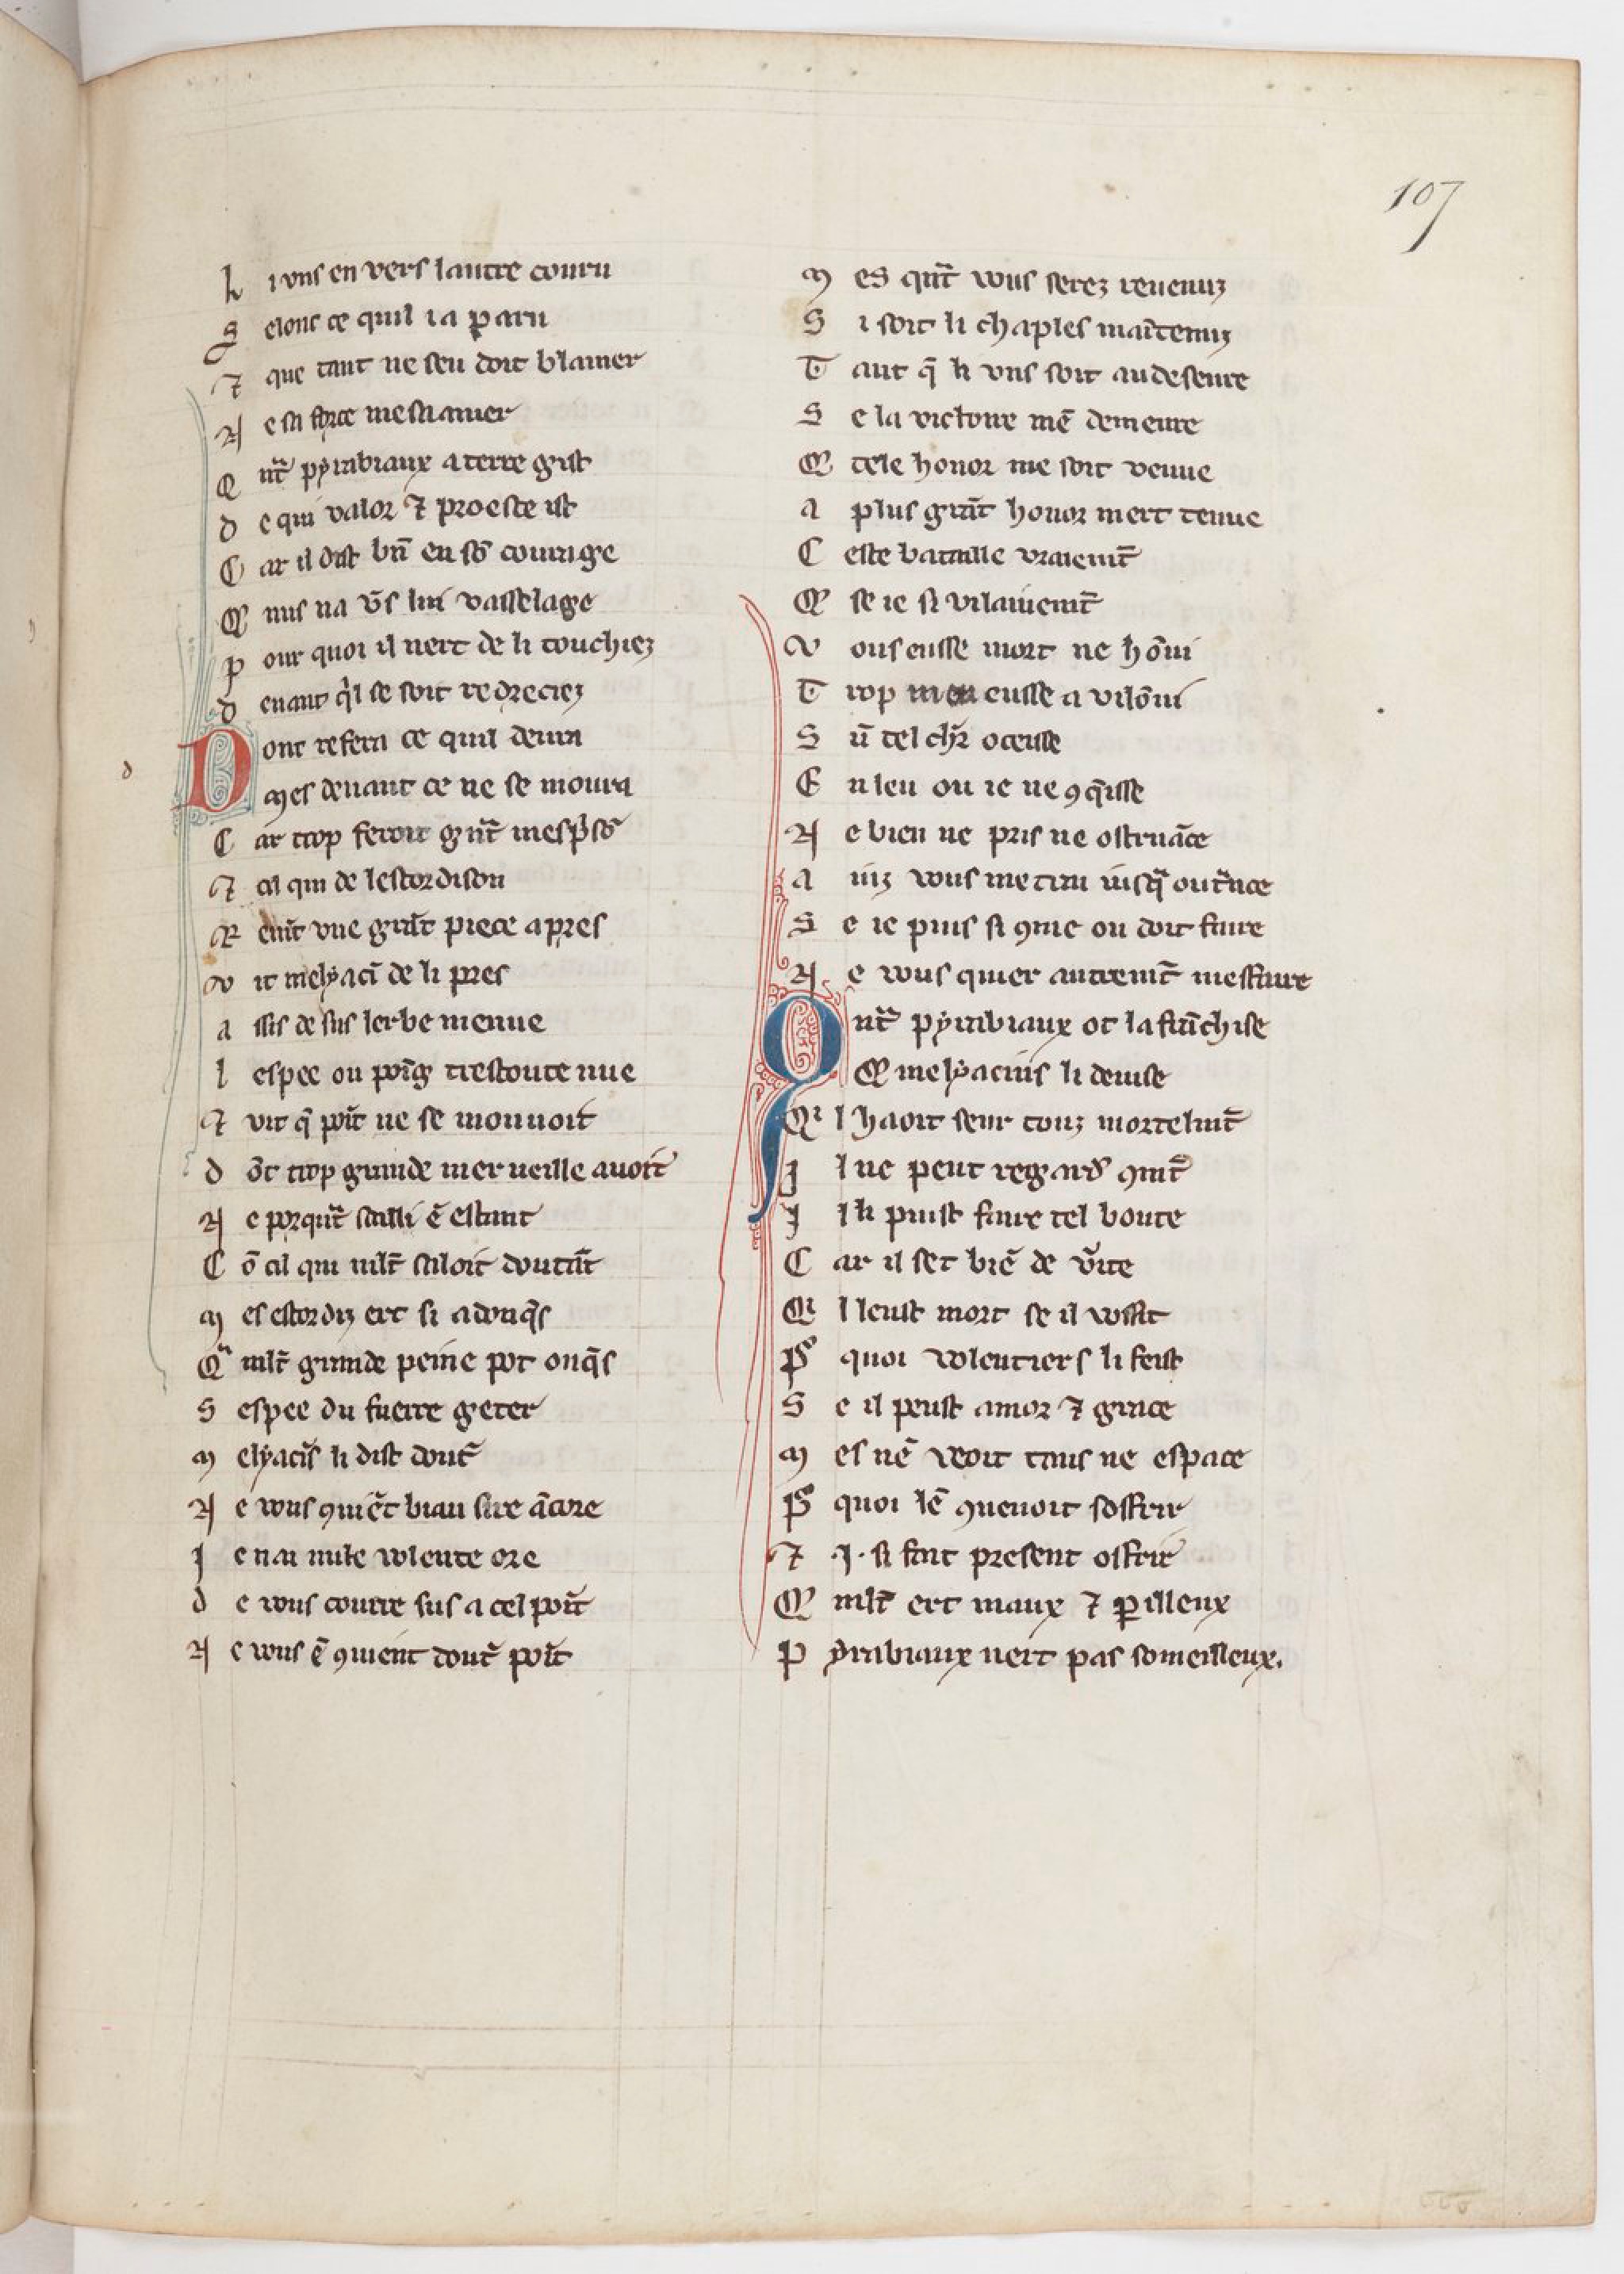 107
L i vns en vers lautre couru
S elonc ce quil i a paru
⁊ que tant ne seu doit blamer
N e sa force mesaamer
Q nt̃ pyrabiaux a terre gist
d e qui valor ⁊ proesce ist
C ar il dist bn̄ en sō courage
Q̃ nus na v̄s lui vasselage
p our quoi il nert de li touchiez
d euant q̄l se soit redreciez
D onc refera ce quil deura
M es deuant ce ne se moura
C ar trop feroit gnt̃ mesp̄sō
⁊ cil qui de lestordison
R euīt vne grāt piece apres
v it melyacī de li pres
a ssis de sus lerbe menue
l espee ou poīg trestoute nue
⁊ vit q̄ poīt ne se mouuoit
d ōt trop grande merueille auoit
N e porqnt̃ sailli ē estant
C ō cil qui mlt̄ saloit doutāt
m es estordiz ert si adonq̄s
Qª mlt̄ grande peine pot onq̄s
S espee du fuerre geter
m elyacīs li dist dont̃
N e vous ꝯuiēt biau sire ācore
J e nai nule volente ore
d e vous courre sus a cel poīt
N e vous ē ꝯuient dout̃ poīt
m es qnt̃ vous serez reuenuz
S i soit li chaples maītenuz
T ant q̄ li vns soit au deseure
S e la victoire mē demeure
Q̃ tele honor me soit venue
a plus grāt honor mert tenue
C este bataille vraiemt̄
Q̃ se ie si vilainemt̄
v ous eusse mort ne hōni
T rop men eusse a vilōni
S ū tel chr̄ oceusse
E n leu ou ie ne ꝯq̄isse
N e bien ne pris ne ostenāce
a iuz vous metrai iusq̄ outrāce
S e ie puis si ꝯme on doit faire
N e vous quier autremt̄ messaire
Q nt̃ pyrabiaux ot la frāchise
Q̃ melyacins li deuise
Qi l haoit seur touz mortelmt̄
J l ne peut regard̄ ꝯmt̄
J l li puist faire tel bonte
C ar il set biē de v̄ite
Qi l leust mort se il vosist
P̄ quoi volentiers li feist
S e il peust amor ⁊ grace
m es nē veoit tans ne espace
P̄ quoi lē ꝯuenoit soffrir
⁊ .J. si fait present offrir
Q̃ mlt̄ ert maux ⁊ ꝑilleux
P yrabiaux nert pas someilleux.